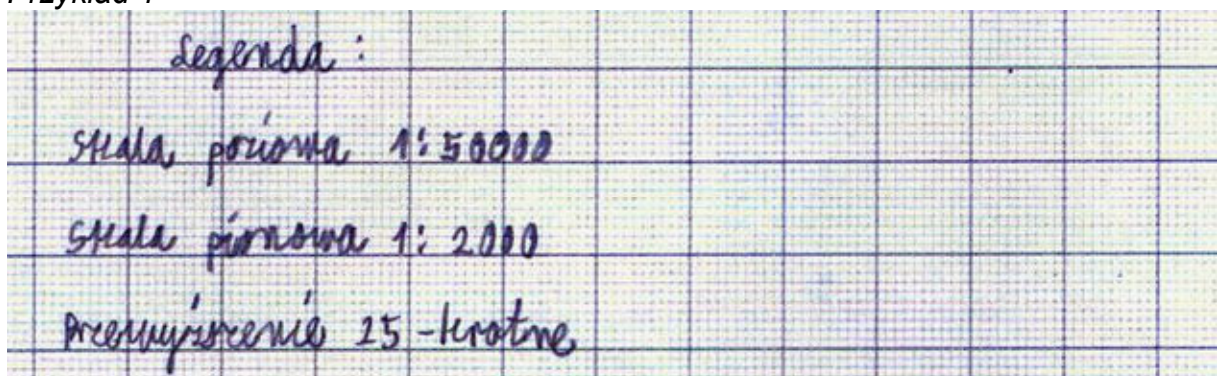 Legenda:
Skala pozioma 1:50000
Skala pionowa 1: 2000
Przewyższenie 25-krotne